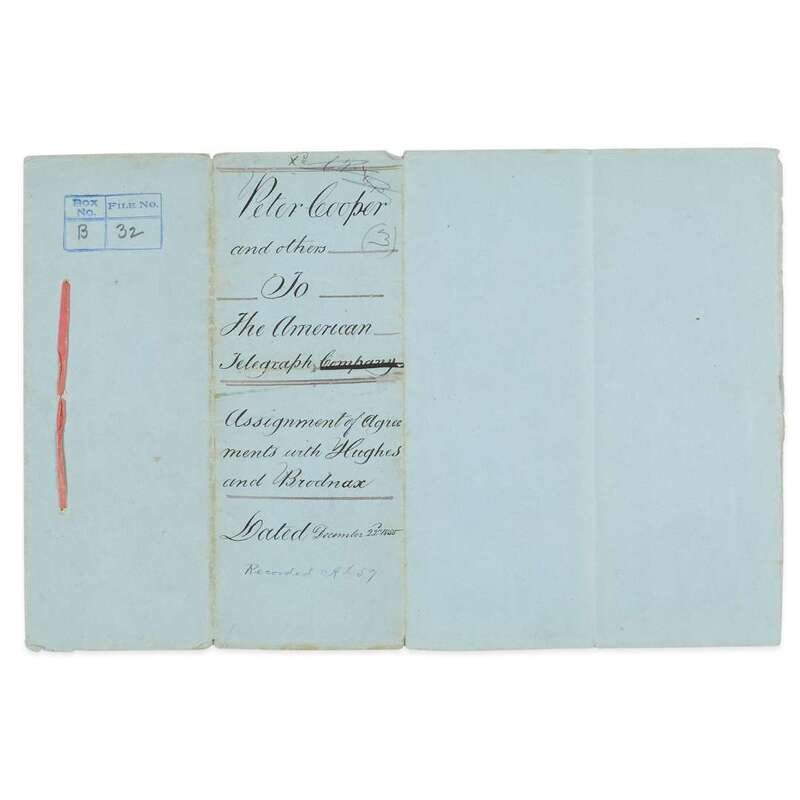 BOX NO. FILE NO.
B 32
Peter Cooper
and others
(3)
To
The American
Telegraph Company
Assignment of Agree
ments with Hughes
and Brodnax
Dated December 22d 1855
Recorded A L 59